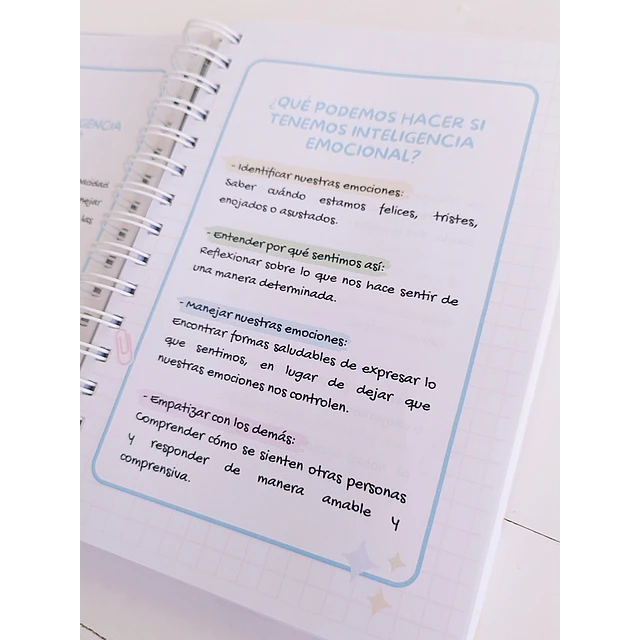 GENCIA
acidad
nejar
las
¿QUÉ PODEMOS HACER SI
TENEMOS INTELIGENCIA
EMOCIONAL?
- Identificar nuestras emociones:
Saber cuándo estamos felices, tristes,
enojados o asustados.
- Entender por qué sentimos así:
Reflexionar sobre lo que nos hace sentir de
una manera determinada.
- Manejar nuestras emociones:
Encontrar formas saludables de expresar lo
que sentimos, en lugar de dejar que
nuestras emociones nos controlen.
- Empatizar con los demás:
Comprender cómo se sienten otras personas
y responder de manera amable y
comprensiva.